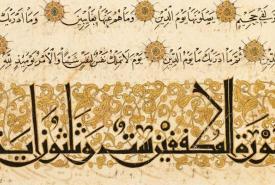 لفي جحيم يصلونها يوم الدين وما هم عنها بغائبين وما ادريك
ثم ما ادريك ما يوم الدين يوم لا تملك نفس لنفس شيئا والامر يومئذ لله
سورة المطففين ست وثلثون ايات